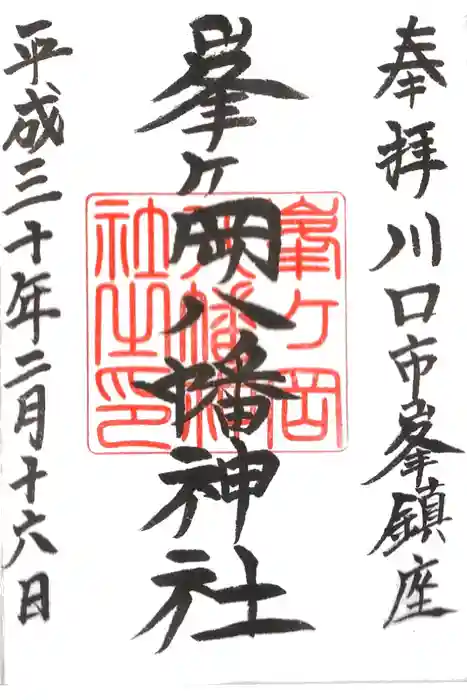 奉拝川口市峯鎮座
峯ヶ岡八幡神社
平成三十年二月十六日
峯ヶ岡
八幡神
社之印